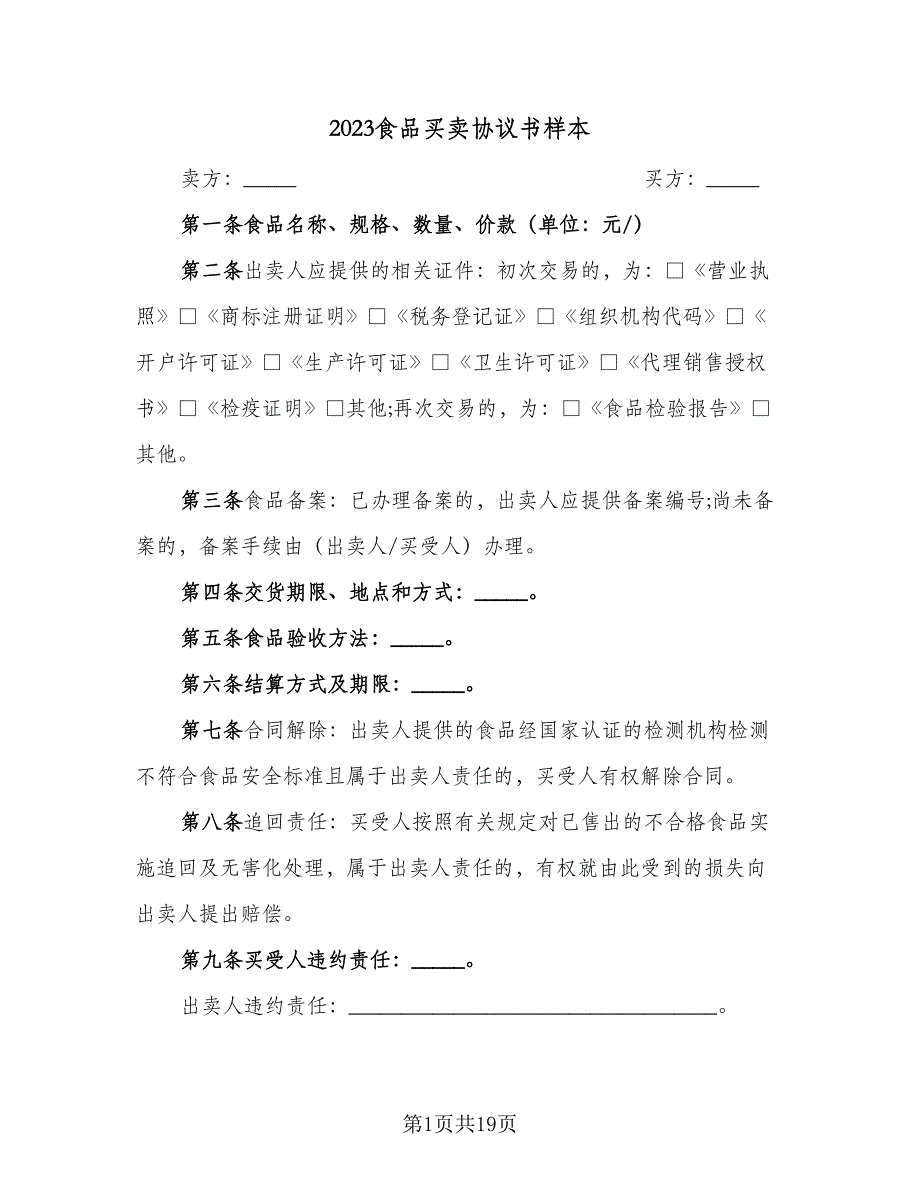 2023食品买卖协议书样本
卖方：_____ 买方：_____
第一条食品名称、规格、数量、价款（单位：元/）
第二条出卖人应提供的相关证件：初次交易的，为：□《营业执
照》□《商标注册证明》□《税务登记证》□《组织机构代码》□《
开户许可证》□《生产许可证》□《卫生许可证》□《代理销售授权
书》□《检疫证明》□其他;再次交易的，为：□《食品检验报告》□
其他。
第三条食品备案：已办理备案的，出卖人应提供备案编号;尚未备
案的，备案手续由（出卖人/买受人）办理。
第四条交货期限、地点和方式：_____。
第五条食品验收方法：_____。
第六条结算方式及期限：_____。
第七条合同解除：出卖人提供的食品经国家认证的检测机构检测
不符合食品安全标准且属于出卖人责任的，买受人有权解除合同。
第八条追回责任：买受人按照有关规定对已售出的不合格食品实
施追回及无害化处理，属于出卖人责任的，有权就由此受到的损失向
出卖人提出赔偿。
第九条买受人违约责任：_____。
出卖人违约责任：___________________________________。
第1页共19页